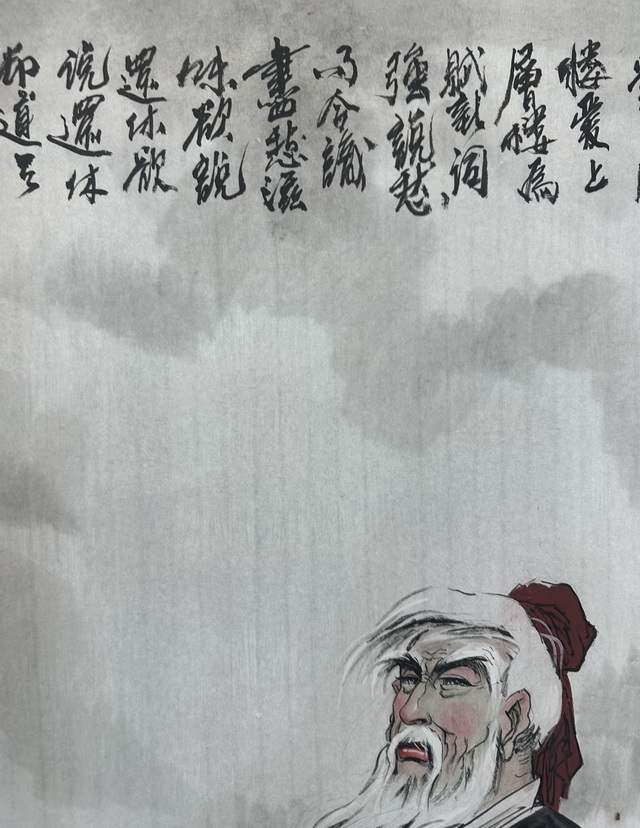 樓愛上
層樓為
賦新詞
強說愁
而今識
盡愁滋
味欲說
還休欲
說還休
却道天